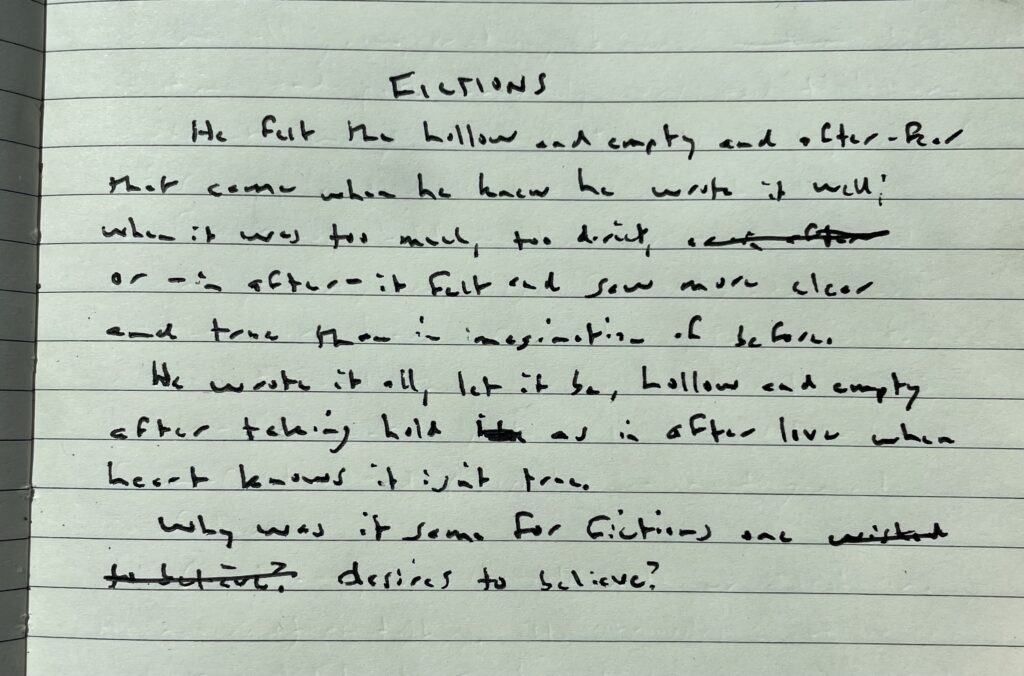 FICTIONS
He felt the hollow and empty and after-fear
that came when he knew he wrote it well;
when it was too much, too direct,
or - in after - it felt and saw more clear
and true than in imagination of before.
He wrote it all, let it be, hollow and empty
after taking hold as in after love when
heart knows it isn't true.
Why was it same for fictions one wished
to believe? desires to believe?